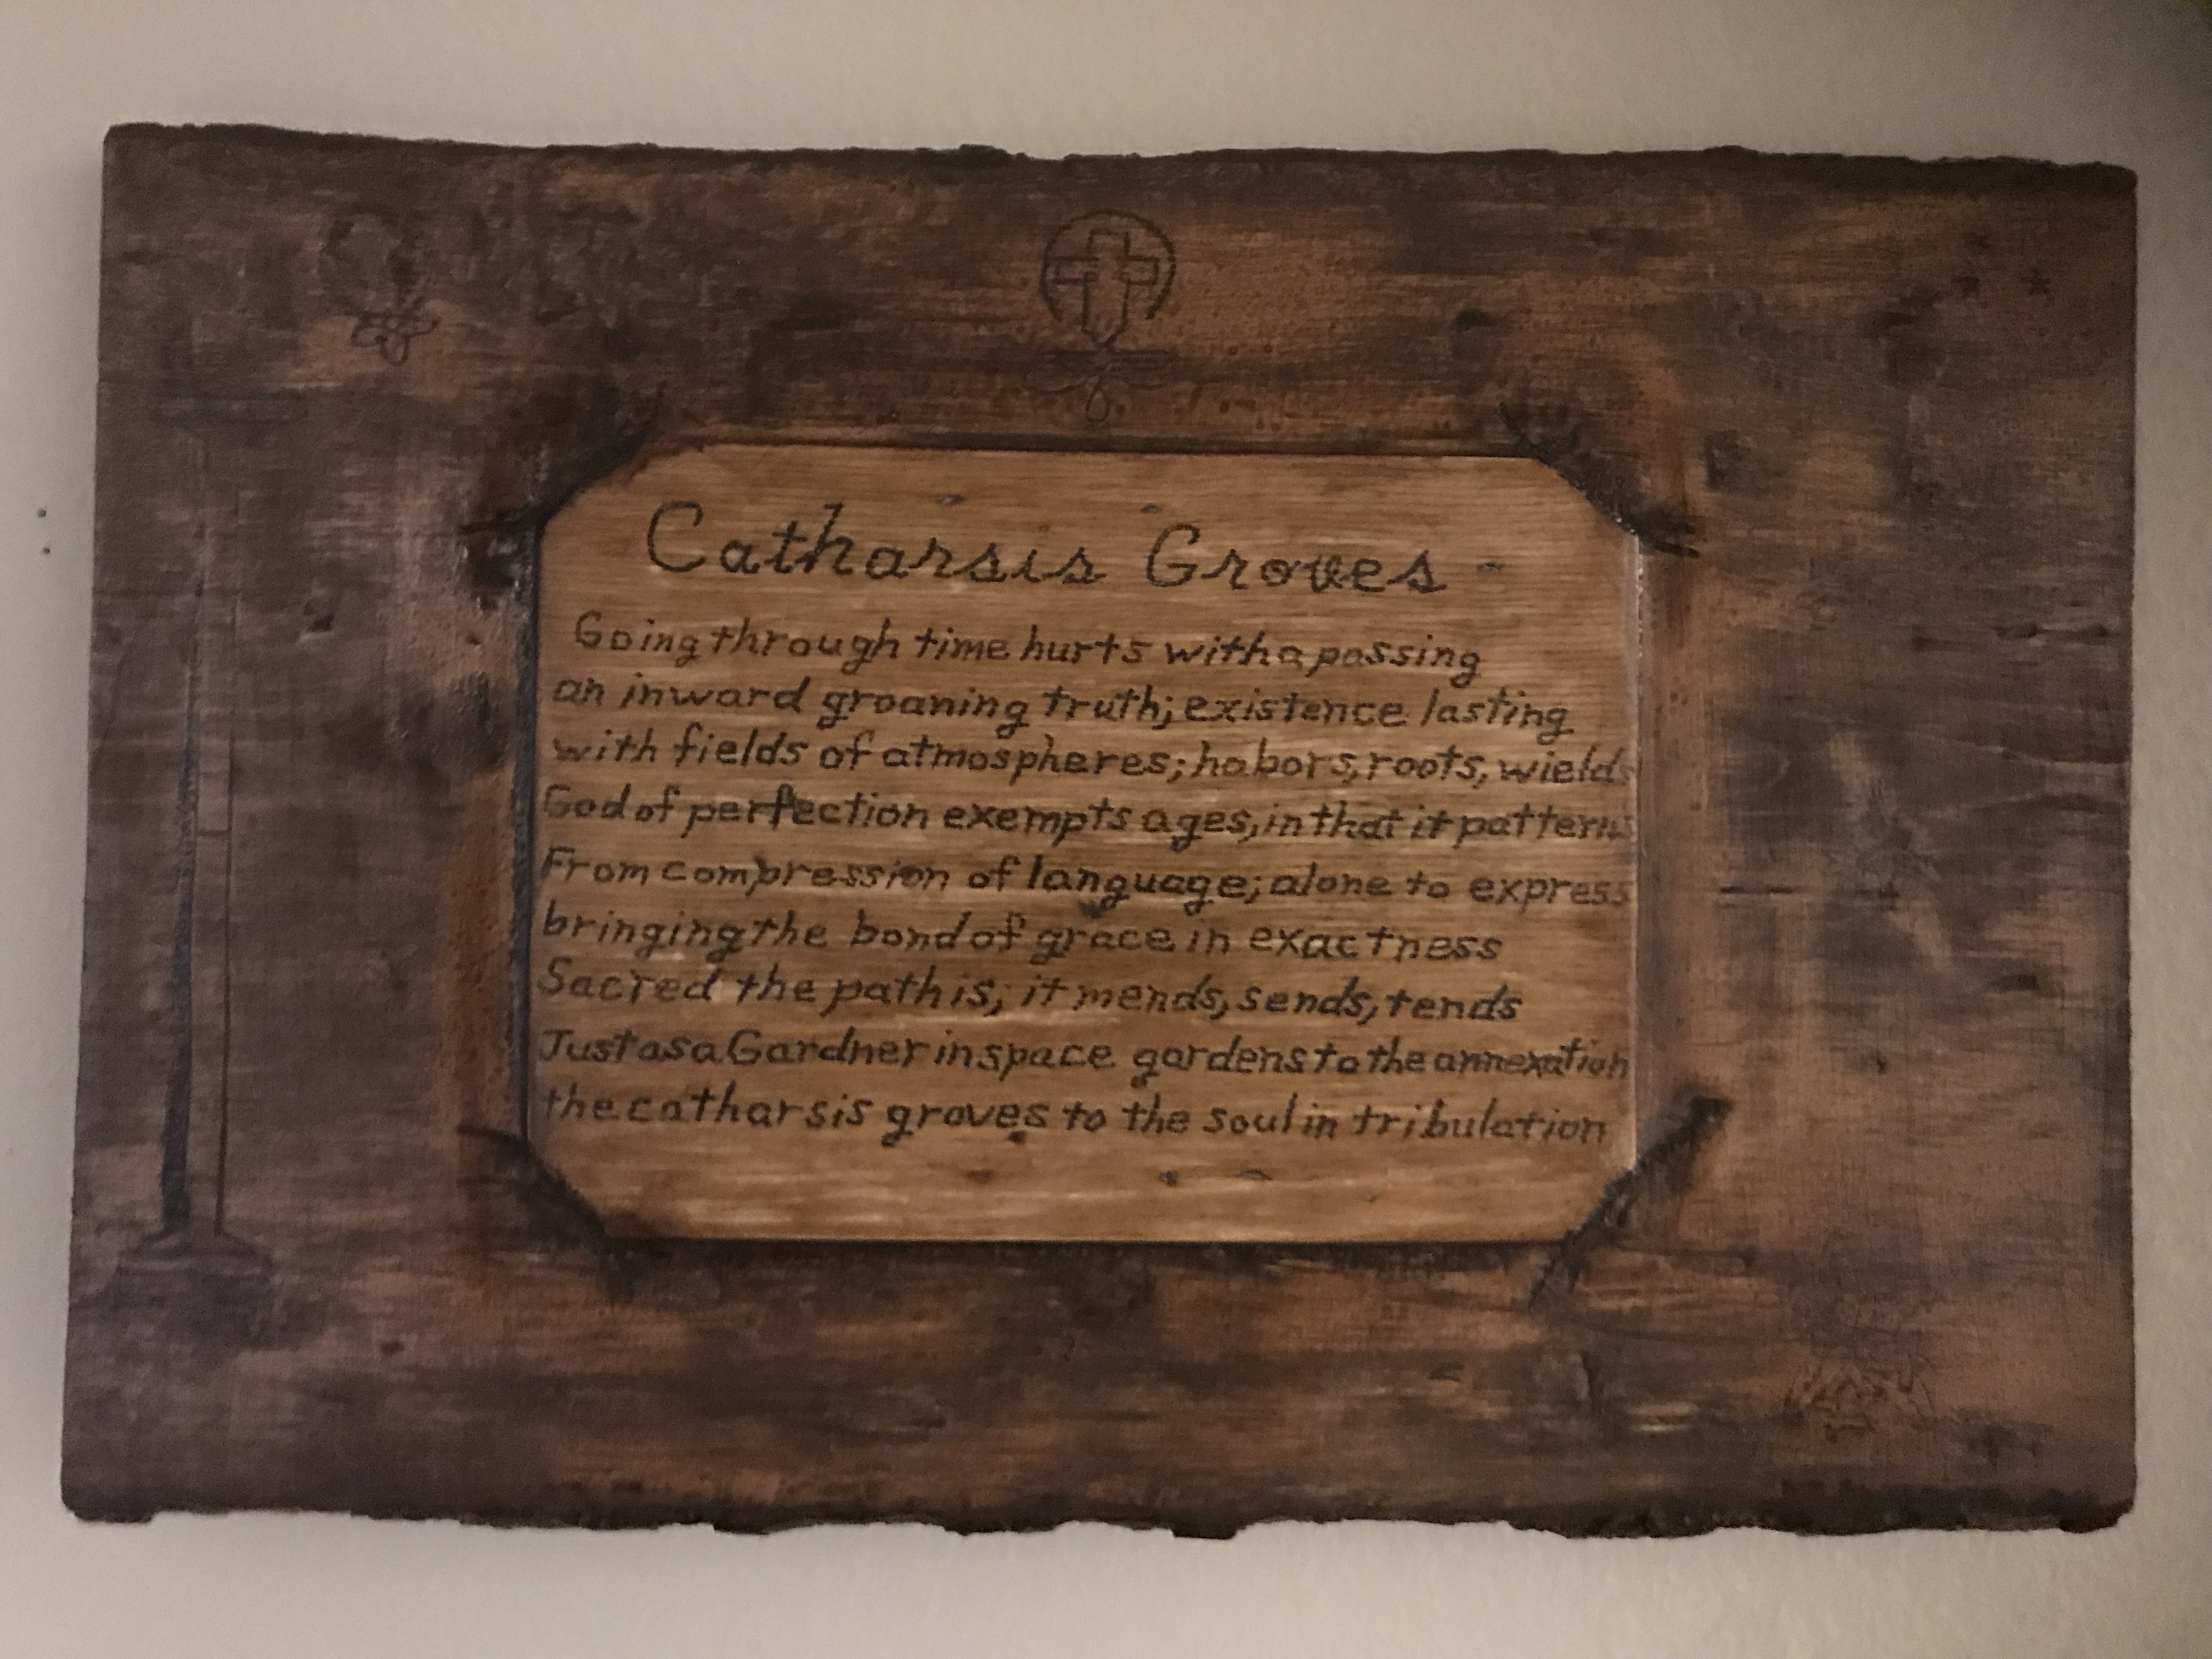 Catharsis Groves
Going through time hurts with a passing
an inward groaning truth; existence lasting
with fields of atmospheres; habors, roots, wields
God of perfection exempts ages, in that it patterns
From compression of language; alone to express
bringing the bond of grace in exactness
Sacred the path is; it mends, sends, tends
Just as a Gardner in space gardens to the annexation
the catharsis groves to the soul in tribulation